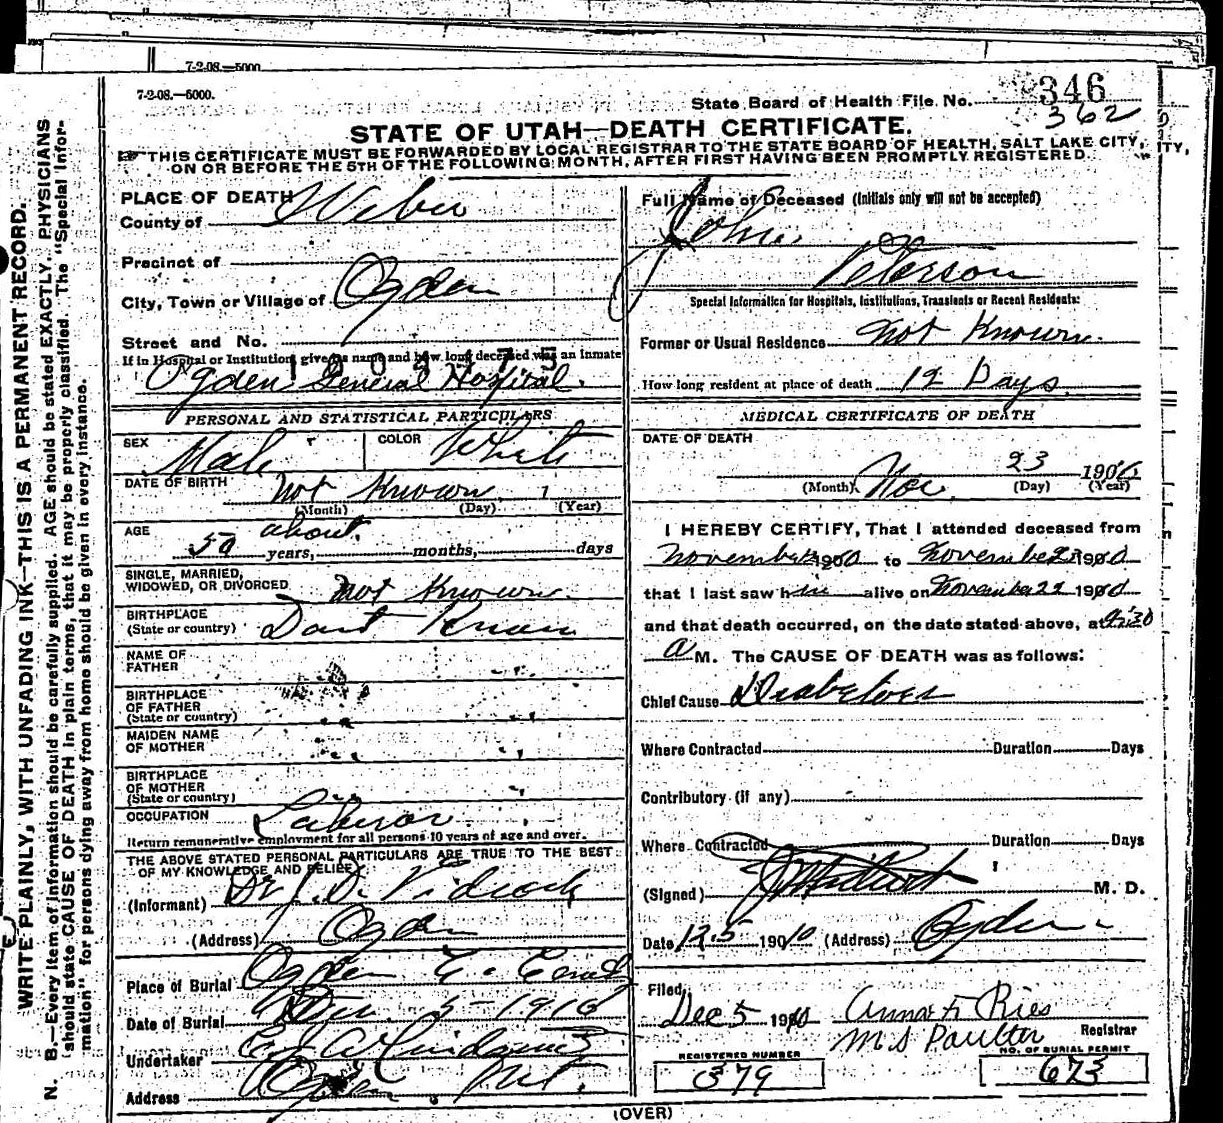 7-2-08.—5000.
7-2-08.—5000.
State Board of Health File No. 346
362
STATE OF UTAH—DEATH CERTIFICATE.
THIS CERTIFICATE MUST BE FORWARDED BY LOCAL REGISTRAR TO THE STATE BOARD OF HEALTH, SALT LAKE CITY,
ON OR BEFORE THE 5TH OF THE FOLLOWING MONTH, AFTER FIRST HAVING BEEN PROMPTLY REGISTERED.
WRITE PLAINLY, WITH UNFADING INK—THIS IS A PERMANENT RECORD.
N. B.—Every item of information should be carefully supplied. AGE should be stated EXACTLY. PHYSICIANS
should state CAUSE OF DEATH in plain terms, that it may be properly classified. The "Special Infor-
mation" for persons dying away from home should be given in every instance.
PLACE OF DEATH
County of Weber
Precinct of
City, Town or Village of Ogden
Street and No.
If in Hospital or Institution, give its name and how long deceased was an inmate
Ogden General Hospital.
PERSONAL AND STATISTICAL PARTICULARS
SEX Male COLOR White
DATE OF BIRTH not Known
(Month) (Day) (Year)
AGE about
50 years, months, days
SINGLE, MARRIED,
WIDOWED, OR DIVORCED not Known
BIRTHPLACE
(State or country) Dont Know
NAME OF
FATHER
BIRTHPLACE
OF FATHER
(State or country)
MAIDEN NAME
OF MOTHER
BIRTHPLACE
OF MOTHER
(State or country)
OCCUPATION Laborer
Return remunerative employment for all persons 10 years of age and over.
THE ABOVE STATED PERSONAL PARTICULARS ARE TRUE TO THE BEST
OF MY KNOWLEDGE AND BELIEF
(Informant) Dr J. D.
(Address) Ogden
Place of Burial Ogden
Date of Burial Dec 5 1910
Undertaker
Address Ogden Ut.
Full Name of Deceased (Initials only will not be accepted)
John
Peterson
Special Information for Hospitals, Institutions, Transients or Recent Residents:
Former or Usual Residence not Known.
How long resident at place of death 12 Days
MEDICAL CERTIFICATE OF DEATH
DATE OF DEATH
Nov. 23 190
(Month) (Day) (Year)
I HEREBY CERTIFY, That I attended deceased from
November 1910 to November 1910
that I last saw him alive on November 22 1910
and that death occurred, on the date stated above, at 9:30
A M. The CAUSE OF DEATH was as follows:
Chief Cause
Where Contracted Duration Days
Contributory (if any)
Where Contracted Duration Days
(Signed) M. D.
Date 12.5 1910 (Address) Ogden
Filed,
Dec 5 1910 Anna F Ries
M S Poulter Registrar
REGISTERED NUMBER
379
NO. OF BURIAL PERMIT
673
(OVER)